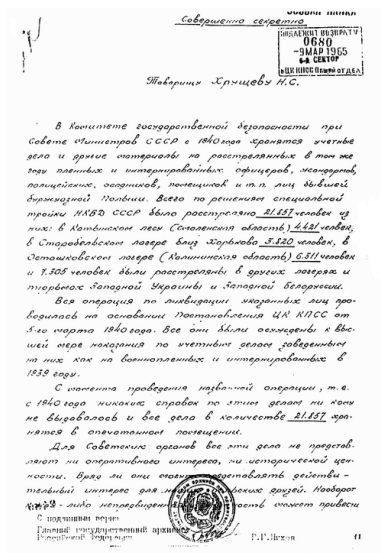 ОСОБАЯ ПАПКА
Совершенно секретно
ПОДЛЕЖИТ ВОЗВРАТУ
0680
-9 МАР 1965
6-й СЕКТОР
ЦК КПСС Общий ОТДЕЛ
Товарищу Хрущеву Н.С.
В Комитете государственной безопасности при
Совете Министров СССР с 1940 года хранятся учетные
дела и другие материалы на расстрелянных в том же
году пленных и интернированных офицеров, жандармов,
полицейских, осадников, помещиков и т.п. лиц бывшей
буржуазной Польши. Всего по решениям специальной
тройки НКВД СССР было расстреляно 21.857 человек из
них: в Катынском лесу (Смоленская область) 4.421 человек,
в Старобельском лагере близ Харькова 3.820 человек, в
Осташковском лагере (Калининская область) 6.311 человек
и 7.305 человек были расстреляны в других лагерях и
тюрьмах Западной Украины и Западной Белоруссии.
Вся операция по ликвидации указанных лиц про-
водилась на основании Постановления ЦК КПСС от
5-го марта 1940 года. Все они были осуждены к выс-
шей мере наказания по учетным делам заведенным
на них как на военнопленных и интернированных в
1939 году.
С момента проведения названной операции, т.е.
с 1940 года никаких справок по этим делам ни кому
не выдавалось и все дела в количестве 21.857 хра-
нятся в опечатанном помещении.
Для Советских органов все эти дела не представ-
ляют ни оперативного интереса, ни исторической цен-
ности. Вряд ли они могут представлять действи-
тельный интерес для друзей. Наоборот
- либо непредвиденная может привести
С подлинным верно
Главный государственный архивист
Российской Федерации
Р.Г.Пихоя